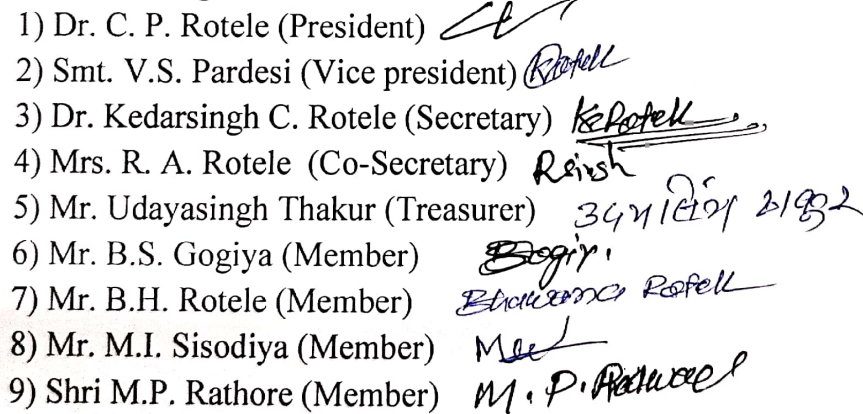 1) Dr. C. P. Rotele (President)
2) Smt. V.S. Pardesi (Vice president)
3) Dr. Kedarsingh C. Rotele (Secretary) KCRotele
4) Mrs. R. A. Rotele (Co-Secretary)
5) Mr. Udayasingh Thakur (Treasurer)
6) Mr. B.S. Gogiya (Member)
7) Mr. B.H. Rotele (Member) Rotele
8) Mr. M.I. Sisodiya (Member)
9) Shri M.P. Rathore (Member) M. P.